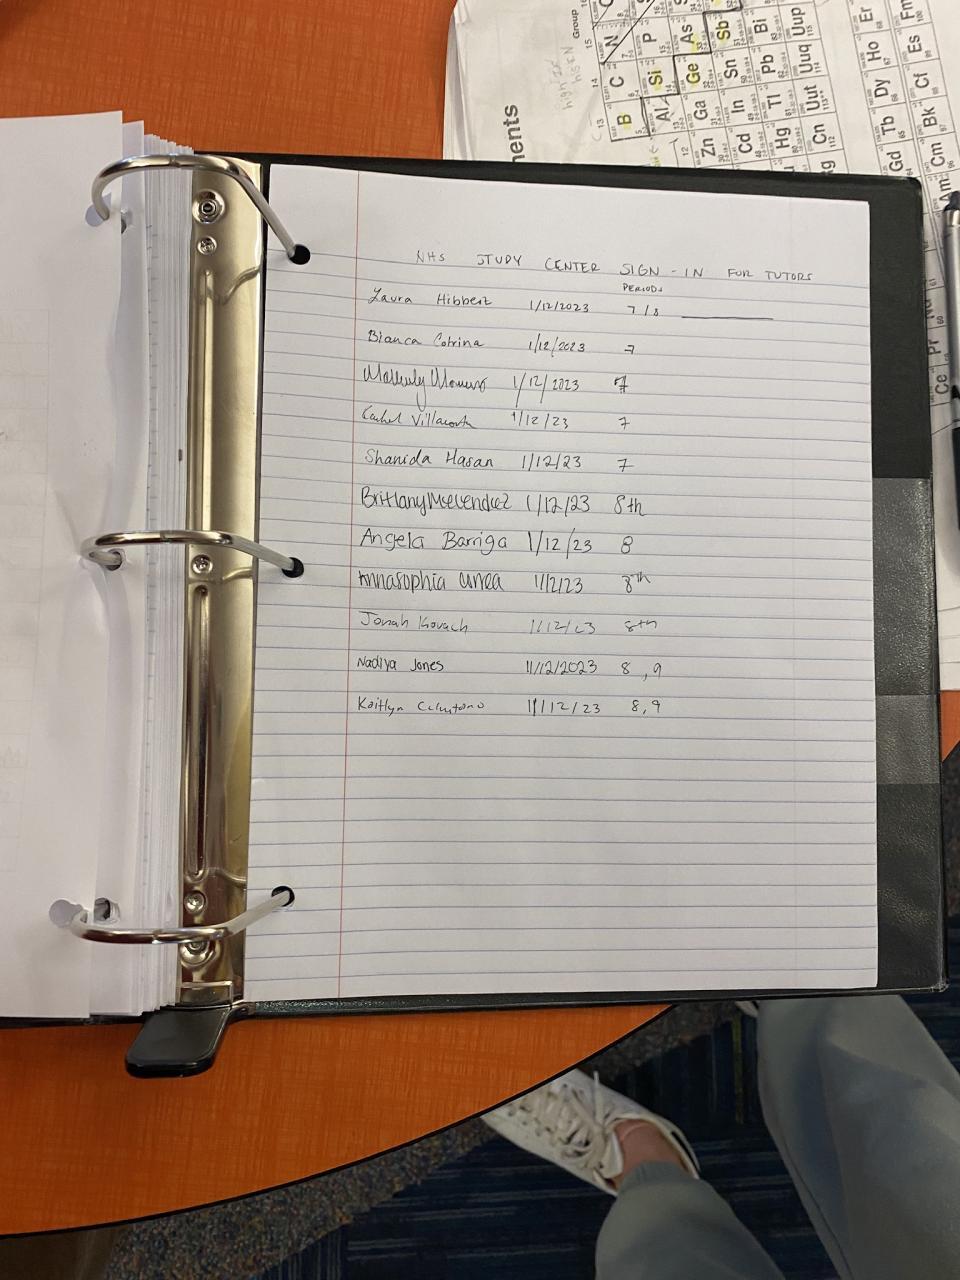 NHS STUDY CENTER SIGN-IN FOR TUTORS
PERIODS
Laura Hibbert 1/12/2023 7/8
Bianca Cotrina 1/12/2023 7
1/12/2023 7
Villacorta 1/12/23 7
Shanida Hasan 1/12/23 7
Brittany Melendez 1/12/23 8th
Angela Barriga 1/12/23 8
Annasophia Urrea 1/12/23 8th
Jonah Kovach 1/12/23 8th
Nadiya Jones 1/12/2023 8, 9
Kaitlyn 1/12/23 8, 9
ments
Group
13
14
15
12
B
C
N
Al
Si
P
Zn
Ga
Ge
As
Cd
In
Sn
Sb
Hg
Tl
Pb
Bi
Cn
Uut
Uuq
Uup
Gd
Tb
Dy
Ho
Er
Am
Cm
Bk
Cf
Es
Fm
Ce
Pr